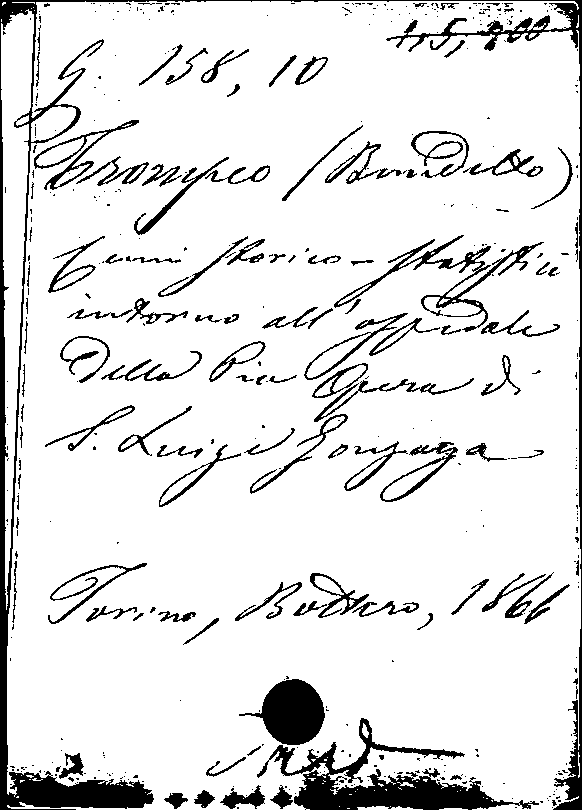 1,5,200
G. 158, 10
Trompeo (Benedetto)
Cenni storico-statistici
intorno all' ospedale
della Pia Opera di
S. Luigi Gonzaga
Torino, Bottero, 1866